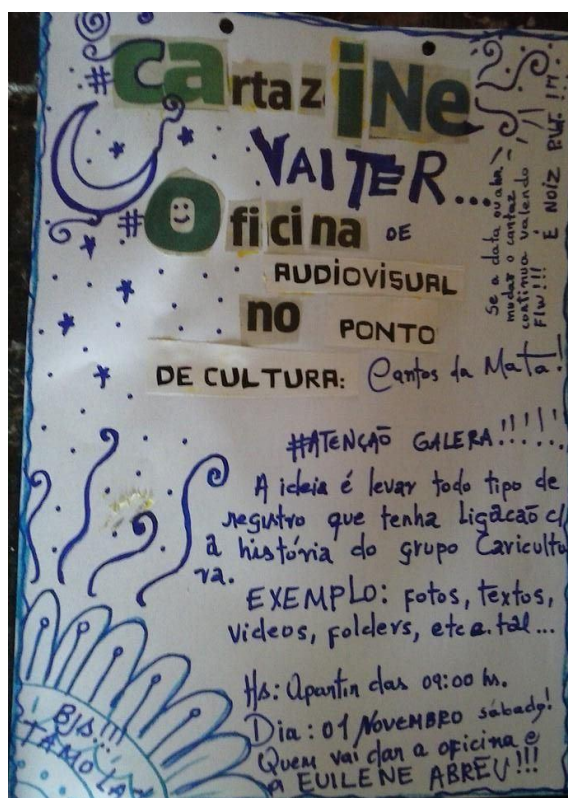 #CartaziNe
VAI TER...
#Oficina DE
AUDIOVISUAL
no PONTO
DE CULTURA: Cantos da Mata!
Se a data ou abr
mudar o cantaz
continua valendo
Flw!!! É NOIZ
#ATENÇAÕ GALERA!!!!!!
A ideia é levar todo tipo de
registro que tenha Ligacaõ c/
a história do grupo Caricultu
ra.
EXEMPLO: fotos, textos,
videos, folders, etc e. tal...
Hs: Apartir das 09:00 hs.
Dia: 01 NOVEMBRO sábado!
Quem vai dar a oficina e
a EUILENE ABREU!!!
BJS!!!
TAMO LA